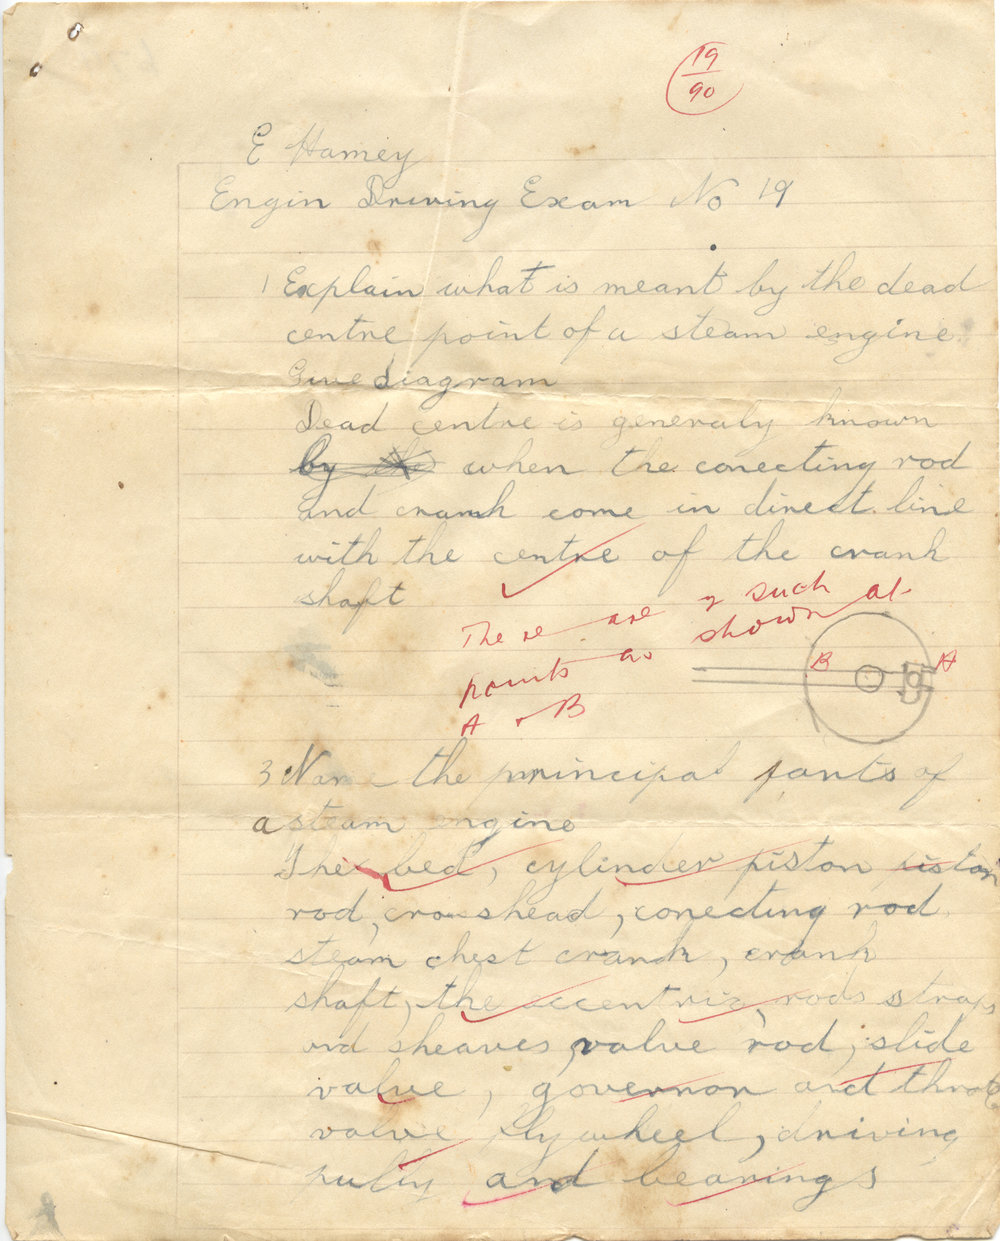 19
90
E Hamey
Engin Driving Exam No 19
1 Explain what is meant by the dead
centre point of a steam engine
Give diagram
Dead centre is generaly known
by the when the conecting rod
and crank come in direct line
with the centre of the crank
shaft
There are 2 such
points as shown at
A & B
B A
3 Name the principal parts of
a steam engine
The bed, cylinder piston piston
rod, crosshead, conecting rod
steam chest crank, crank
shaft, the eccentric, rods straps
and sheaves, valve rod, slide
valve, governor and throtle
valve flywheel, driving
pully and bearings